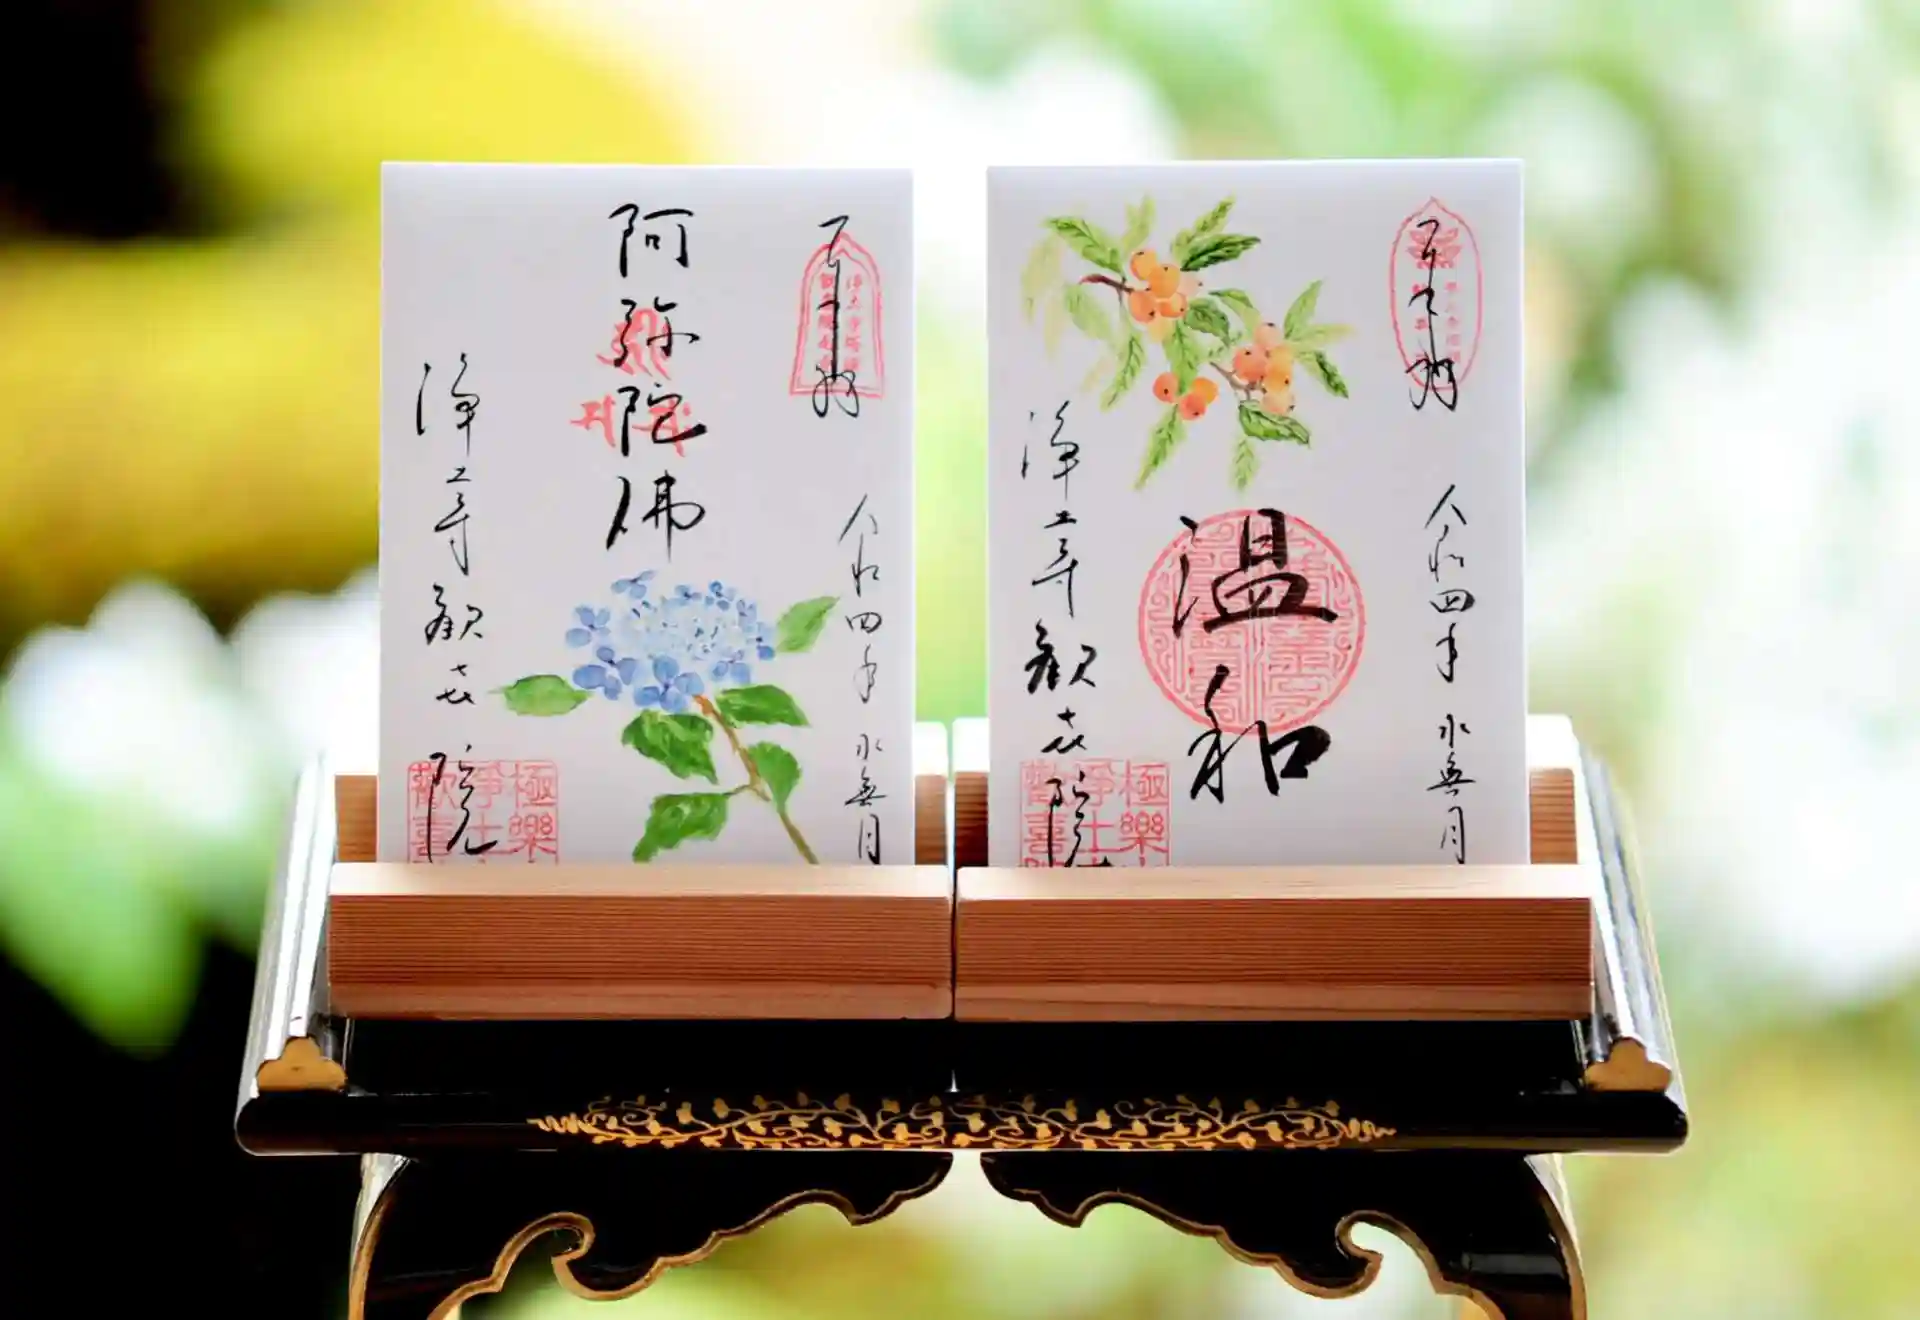 奉拝
令和四年 水無月
阿弥陀佛
浄土寺 歓喜院
奉拝
令和四年 水無月
温和
浄土寺 歓喜院
極樂
淨土
歡喜
極樂
淨土
歡喜